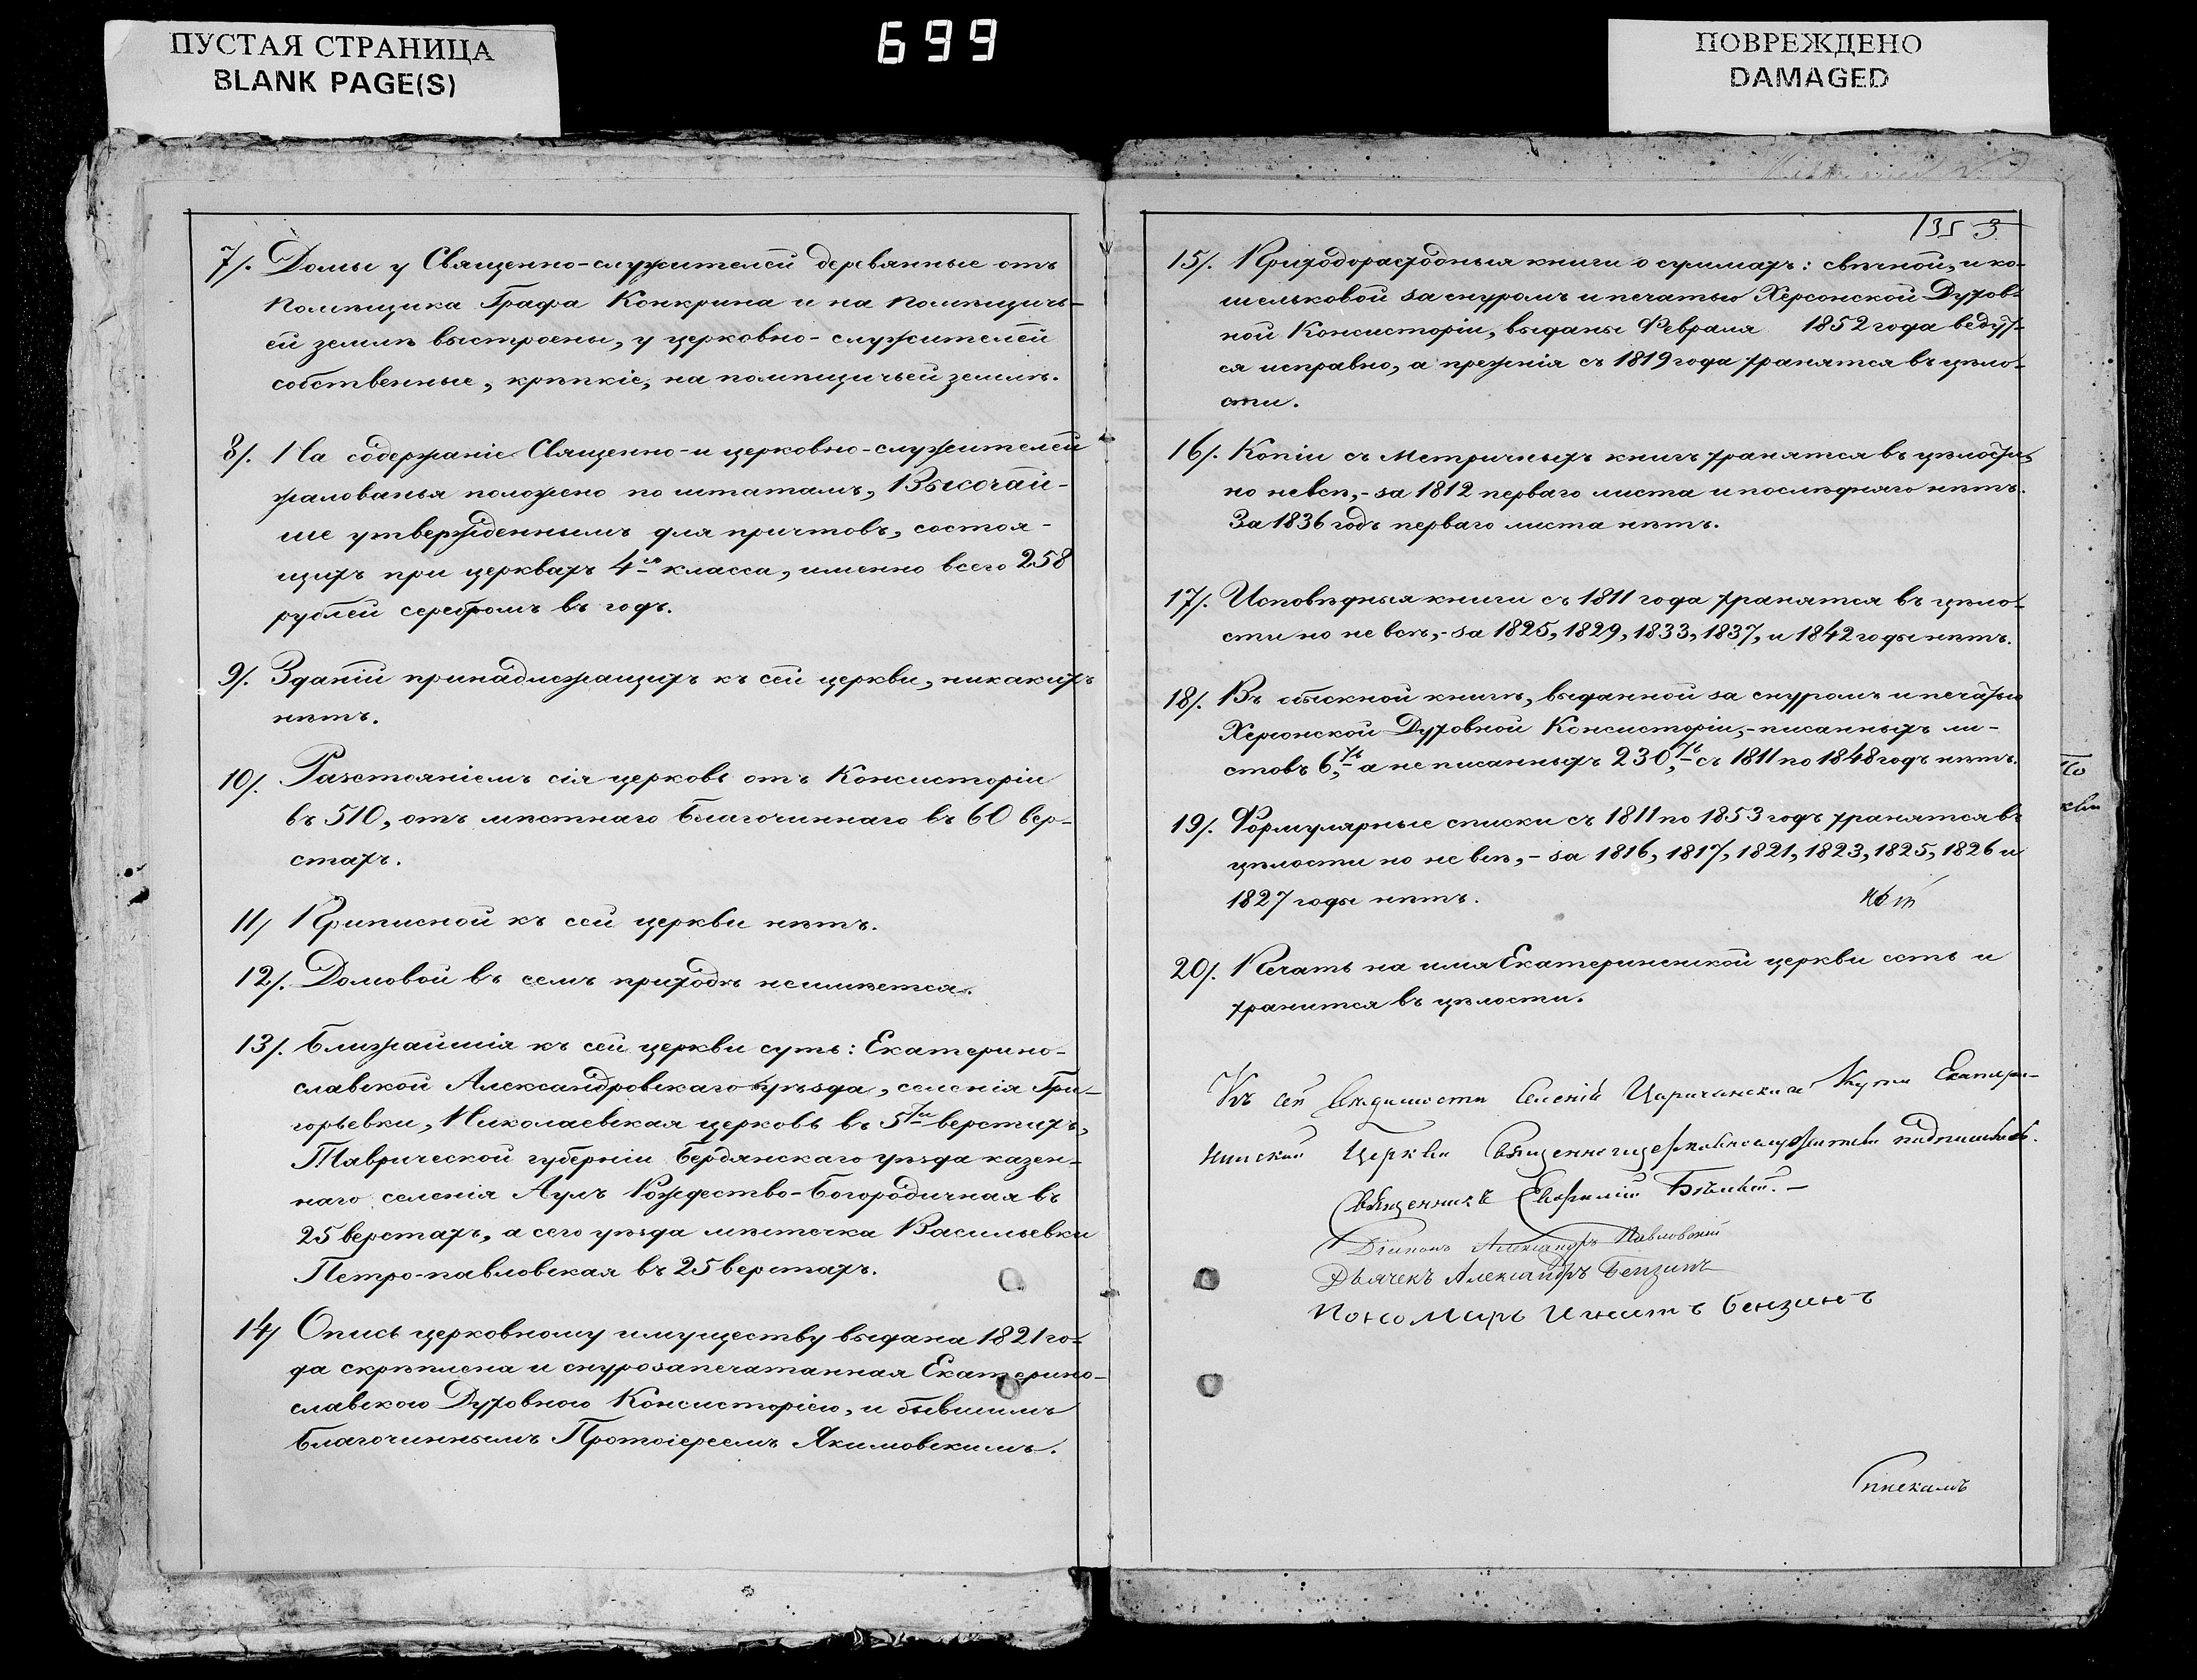 ПУСТАЯ СТРАНИЦА
BLANK PAGE(S)
699
ПОВРЕЖДЕНО
DAMAGED
7/. Домы у Священно-служителей деревянные отъ
помѣщика Графа Конкрина и на помѣщичь-
ей землѣ выстроены, у церковно-служителей
собственные, крѣпкіе, на помѣщичьей землѣ.
8/. На содержаніе Священно-и церковно-служителей
жалованья положено по штатамъ, Высочай-
ше утвержденнымъ для причтовъ, состоя-
щихъ при церквахъ 4го класса, именно всего 258
рублей серебромъ въ годъ.
9/. Зданій принадлежащихъ къ сей церкви, никакихъ
нѣтъ.
10/. Разстояніемъ сія церковь отъ Консисторіи
въ 510, отъ мѣстнаго Благочиннаго въ 60 вер-
стахъ.
11/ Приписной къ сей церкви нѣтъ.
12/. Домовой въ семъ приходѣ неимѣется.
13/. Ближайшія къ сей церкви суть: Екатерино-
славской Александровскаго уѣзда, селенія Гри-
горьевки, Николаевская церковь въ 5ти верстахъ,
Таврической губерніи Бердянскаго уѣзда казен-
наго селенія Аулъ Рождество-Богородичная въ
25 верстахъ, а сего уѣзда мѣстечка Васильевки
Петро-павловская въ 25 верстахъ.
14/ Опись церковному имуществу выдана 1821 го-
да скрѣплена и снурозапечатанная Екатерино-
славскою Духовною Консисторіею, и бывшимъ
Благочиннымъ Протоіереемъ Якимовскимъ.
135 3
15/. Приходорасходныя книги о суммахъ: свѣчной, и ко-
шельковой за снуромъ и печатью Херсонской Духов-
ной Консисторіи, выданы Февраля 1852 года ведут-
ся исправно, а прежнія съ 1819 года хранятся въ цѣло-
сти.
16/. Копіи съ Метричныхъ книгъ хранятся въ цѣлости,
но невсѣ,- за 1812 перваго листа и послѣдняго нѣтъ.
За 1836 годъ перваго листа нѣтъ.
17/. Исповѣдныя книги съ 1811 года хранятся въ цѣло-
сти но не всѣ,- за 1825, 1829, 1833, 1837, и 1842 годы нѣтъ.
18/. Въ обыскной книгѣ, выданной за снуромъ и печатью
Херсонской Духовной Консисторіи,- писанныхъ ли-
стовъ 6,ть а не писанныхъ 230,ть съ 1811 по 1848 годъ нѣтъ.
19/. Формулярные списки съ 1811 по 1853 годъ хранятся въ
цѣлости но не всѣ,- за 1816, 1817, 1821, 1823, 1825, 1826 и
1827 годы нѣтъ.
20/. Печать на имя Екатериненской церкви есть и
хранится въ цѣлости.
Къ сей Вѣдомости Селенія Царичанскаго Кута Екатери-
нинской Церкви Священноицерковнослужители подписались.
Священникъ Евфимій
Діаконъ Александръ Павловскій
Дьячекъ Александръ Бензинъ
Пономарь Игнатъ бензинъ